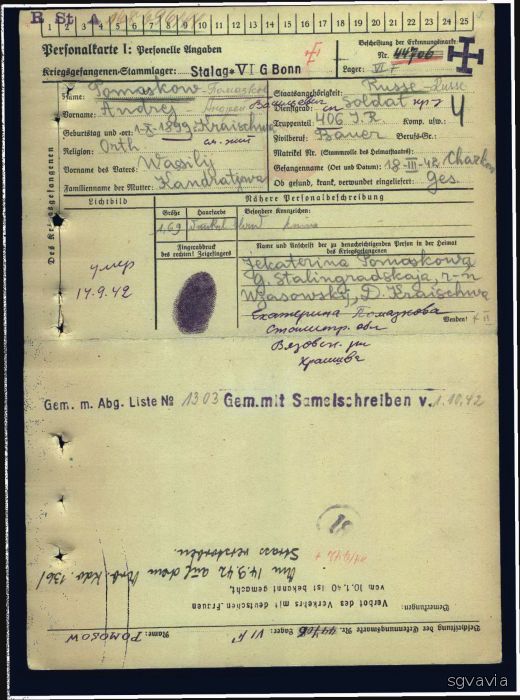 R St A
1 2 3 4 5 6 7 8 9 10 11 12 13 14 15 16 17 18 19 20 21 22 23 24 25
Personalkarte I: Personelle Angaben
Kriegsgefangenen-Stammlager: Stalag VI G Bonn
Beschriftung der Erkennungsmarke
Nr. 44706
Lager: VI F
Des Kriegsgefangenen
Name: Pomaskow
Vorname: Andrej Андрей Васильевич
Geburtstag und -ort: 1.X.1899 Kraischwa
Religion: Orth
Vorname des Vaters: Wasilij
Familienname der Mutter: Kandratzewa
Staatsangehörigkeit: Russe
Dienstgrad: Soldat
Truppenteil: 406 I.R. Komp. usw.: 4
Zivilberuf: Bauer Berufs-Gr.:
Matrikel Nr. (Stammrolle des Heimatstaates):
Gefangennahme (Ort und Datum): 18-III-42 Charkow
Ob gesund, krank, verwundet eingeliefert: ges.
Lichtbild
Nähere Personalbeschreibung
Größe Haarfarbe Besondere Kennzeichen:
1,69
Fingerabdruck
des rechten! Zeigefingers
Name und Anschrift der zu benachrichtigenden Person in der Heimat
des Kriegsgefangenen
Jekaterina Pomaskowa
g. Stalingradskaja, r-n
Wjasowskij, D. Kraischwa
Екатерина Помазкова
Вязовск. рн
Wenden!
умер
14.9.42
Gem. m. Abg. Liste № 1303 Gem. mit Samelschreiben v. 1.10.42
Beschriftung der Erkennungsmarke Nr. 44706 Lager: VI F Name: POMOSOW
Bemerkungen:
Verbot des Verkehrs mit deutschen Frauen
vom 10.1.40 ist bekannt gemacht.
Am 14.9.42 auf dem Arb. Kdo. 136/
Strass verstorben.
sgvavia